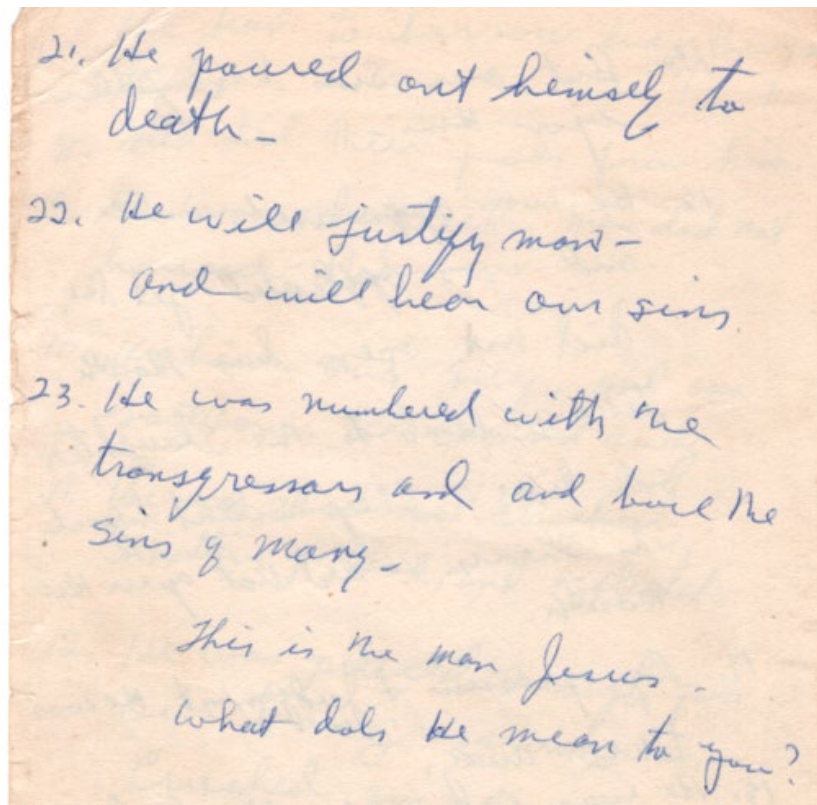 21. He poured out himself to
death -
22. He will justify man -
and will bear our sins.
23. He was numbered with the
transgressors and and bore the
sins of many -
This is the man Jesus.
What does He mean to you?